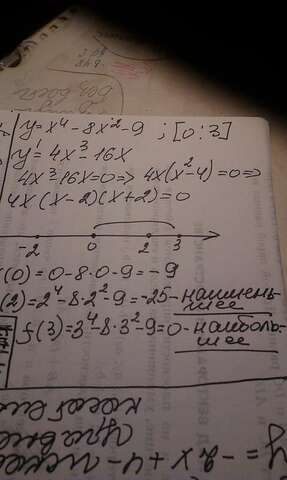 y=x⁴-8x²-9 ; [0;3]
y'=4x³-16x
4x³-16x=0=> 4x(x²-4)=0=>
4x(x-2)(x+2)=0
-2 0 2 3
(0)=0-8·0-9=-9
(2)=2⁴-8·2²-9=-25-наимень-
шее
f(3)=3⁴-8·3²-9=0-наиболь-
шее
y=-2x+4-